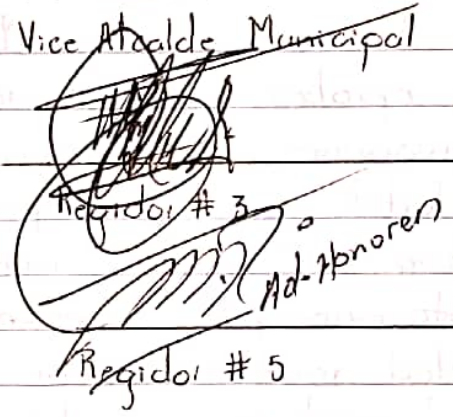 Vice Alcalde Municipal
Regidor # 3
Ad-Honoren
Regidor # 5